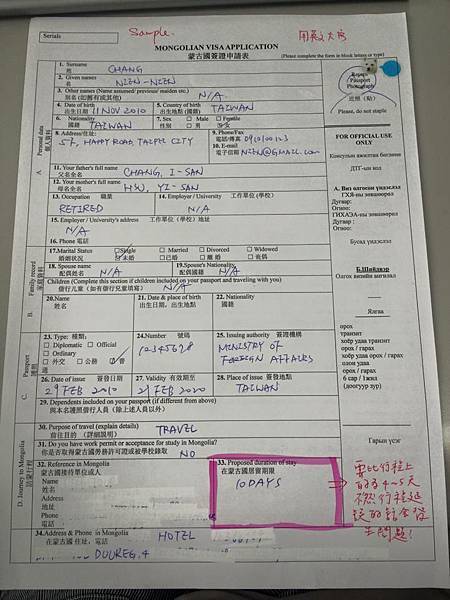 Serials
Sample.
用英文大寫
MONGOLIAN VISA APPLICATION
蒙古國簽證申請表
(Please complete the form in block letters or type)
1. Surname
姓
CHANG
2. Given names
名
NIEN-NIEN
3. Other names (Name assumed/ previous/ maiden etc.)
別名(如舊有或其他)
N/A
4. Date of birth
出生日期
11 NOV 2010
5. Country of birth
出生地點(國籍)
TAIWAN
Recent
Passport
Photograph
近照(貼)
Please, do not staple
6. Nationality
國籍
TAIWAN
7. Sex
性別
Male
男
Female
女
8. Address/住址:
57, HAPPY ROAD, TAIPEI CITY
9. Phone/Fax
電話/傳真
0910100123
10. E-mail
電子信箱
NIEN@GMAIL.com
A. Personal data
個人資料
FOR OFFICIAL USE
ONLY
Консулын ажилтан бөглөнө
ДТГ-ын код
11. Your father's full name
父名全名
CHANG, I-SAN
12. Your mother's full name
母名全名
HSU, YI-SAN
13. Occupation 職業
RETIRED
14. Employer / University 工作單位(學校)
N/A
15. Employer / University's address 工作單位(學校)地址
N/A
16. Phone 電話
А. Виз олгосон үндэслэл
ГХЯ-ны зөвшөөрөл
Дугаар:
Огноо:
ГИХАЭА-ны зөвшөөрөл
Дугаар:
Огноо:
Бусад үндэслэл
17. Marital Status
婚姻狀況
Single
未婚
Married
已婚
Divorced
離婚
Widowed
喪偶
18. Spouse name
配偶姓名
N/A
19. Spouse's Nationality
配偶國籍
N/A
Children (Complete this section if children included on your passport and traveling with you)
偕行兒童(如有偕行兒童填寫)
N/A
20. Name
姓名
21. Date & place of birth
出生日期、出生地點
22. Nationality
國籍
B. Family record
家庭資料
Б. Шийдвэр
Олгох визийн ангилал
Ялгаа
23. Type 種類:
Diplomatic
Official
Ordinary
外交
公務
普通
24. Number 號碼
12345678
25. Issuing authority 簽證機構
MINISTRY OF
FOREIGN AFFAIRS
26. Date of issue 簽發日期
29 FEB 2010
27. Validity 有效期至
29 FEB 2020
28. Place of issue 簽發地點
TAIWAN
29. Dependents included on your passport (if different from above)
與本名護照偕行人員(除上述人員以外)
C. Passport
護照
орох
транзит
хоёр удаа транзит
орох / гарах
хоёр удаа орох / гарах
олон удаа
орох / гарах
6 сар / 1жил
(доогуур зур)
30. Purpose of travel (explain details)
前往目的(詳細說明)
TRAVEL
31. Do you have work permit or acceptance for study in Mongolia?
你是否取得蒙古國勞務許可證或被學校錄取
NO
32. Reference in Mongolia
蒙古國接待單位或人
Name
姓名
Address
地址
Phone
電話
33. Proposed duration of stay
在蒙古國居留期限
10 DAYS
要比行程上
的多4~5天
不然行程延
誤的話會發
生問題!
Гарын үсэг
34. Address & Phone in Mongolia
在蒙古國住址,電話
HOTEL
DUUREG. 4
D. Journey to Mongolia
訪蒙行程